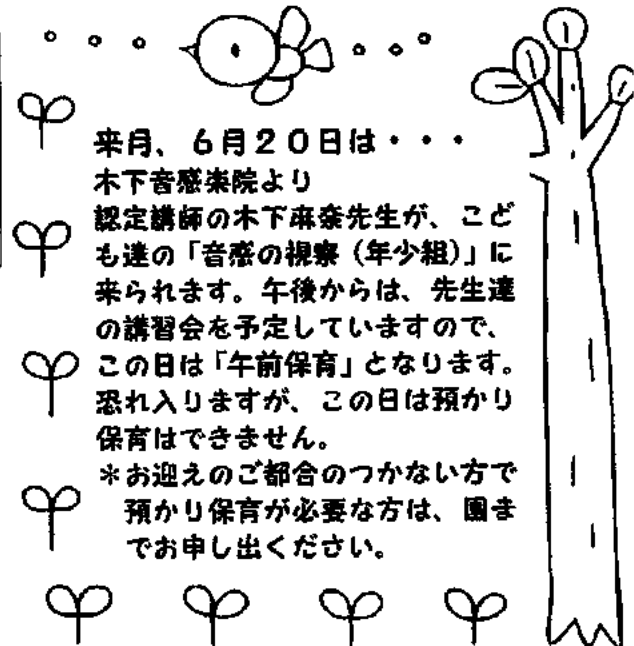 来月、6月20日は・・・
木下音感楽院より
認定講師の木下麻奈先生が、こど
も達の「音感の視察（年少組）」に
来られます。午後からは、先生達
の講習会を予定していますので、
この日は「午前保育」となります。
恐れ入りますが、この日は預かり
保育はできません。
＊お迎えのご都合のつかない方で
預かり保育が必要な方は、園ま
でお申し出ください。